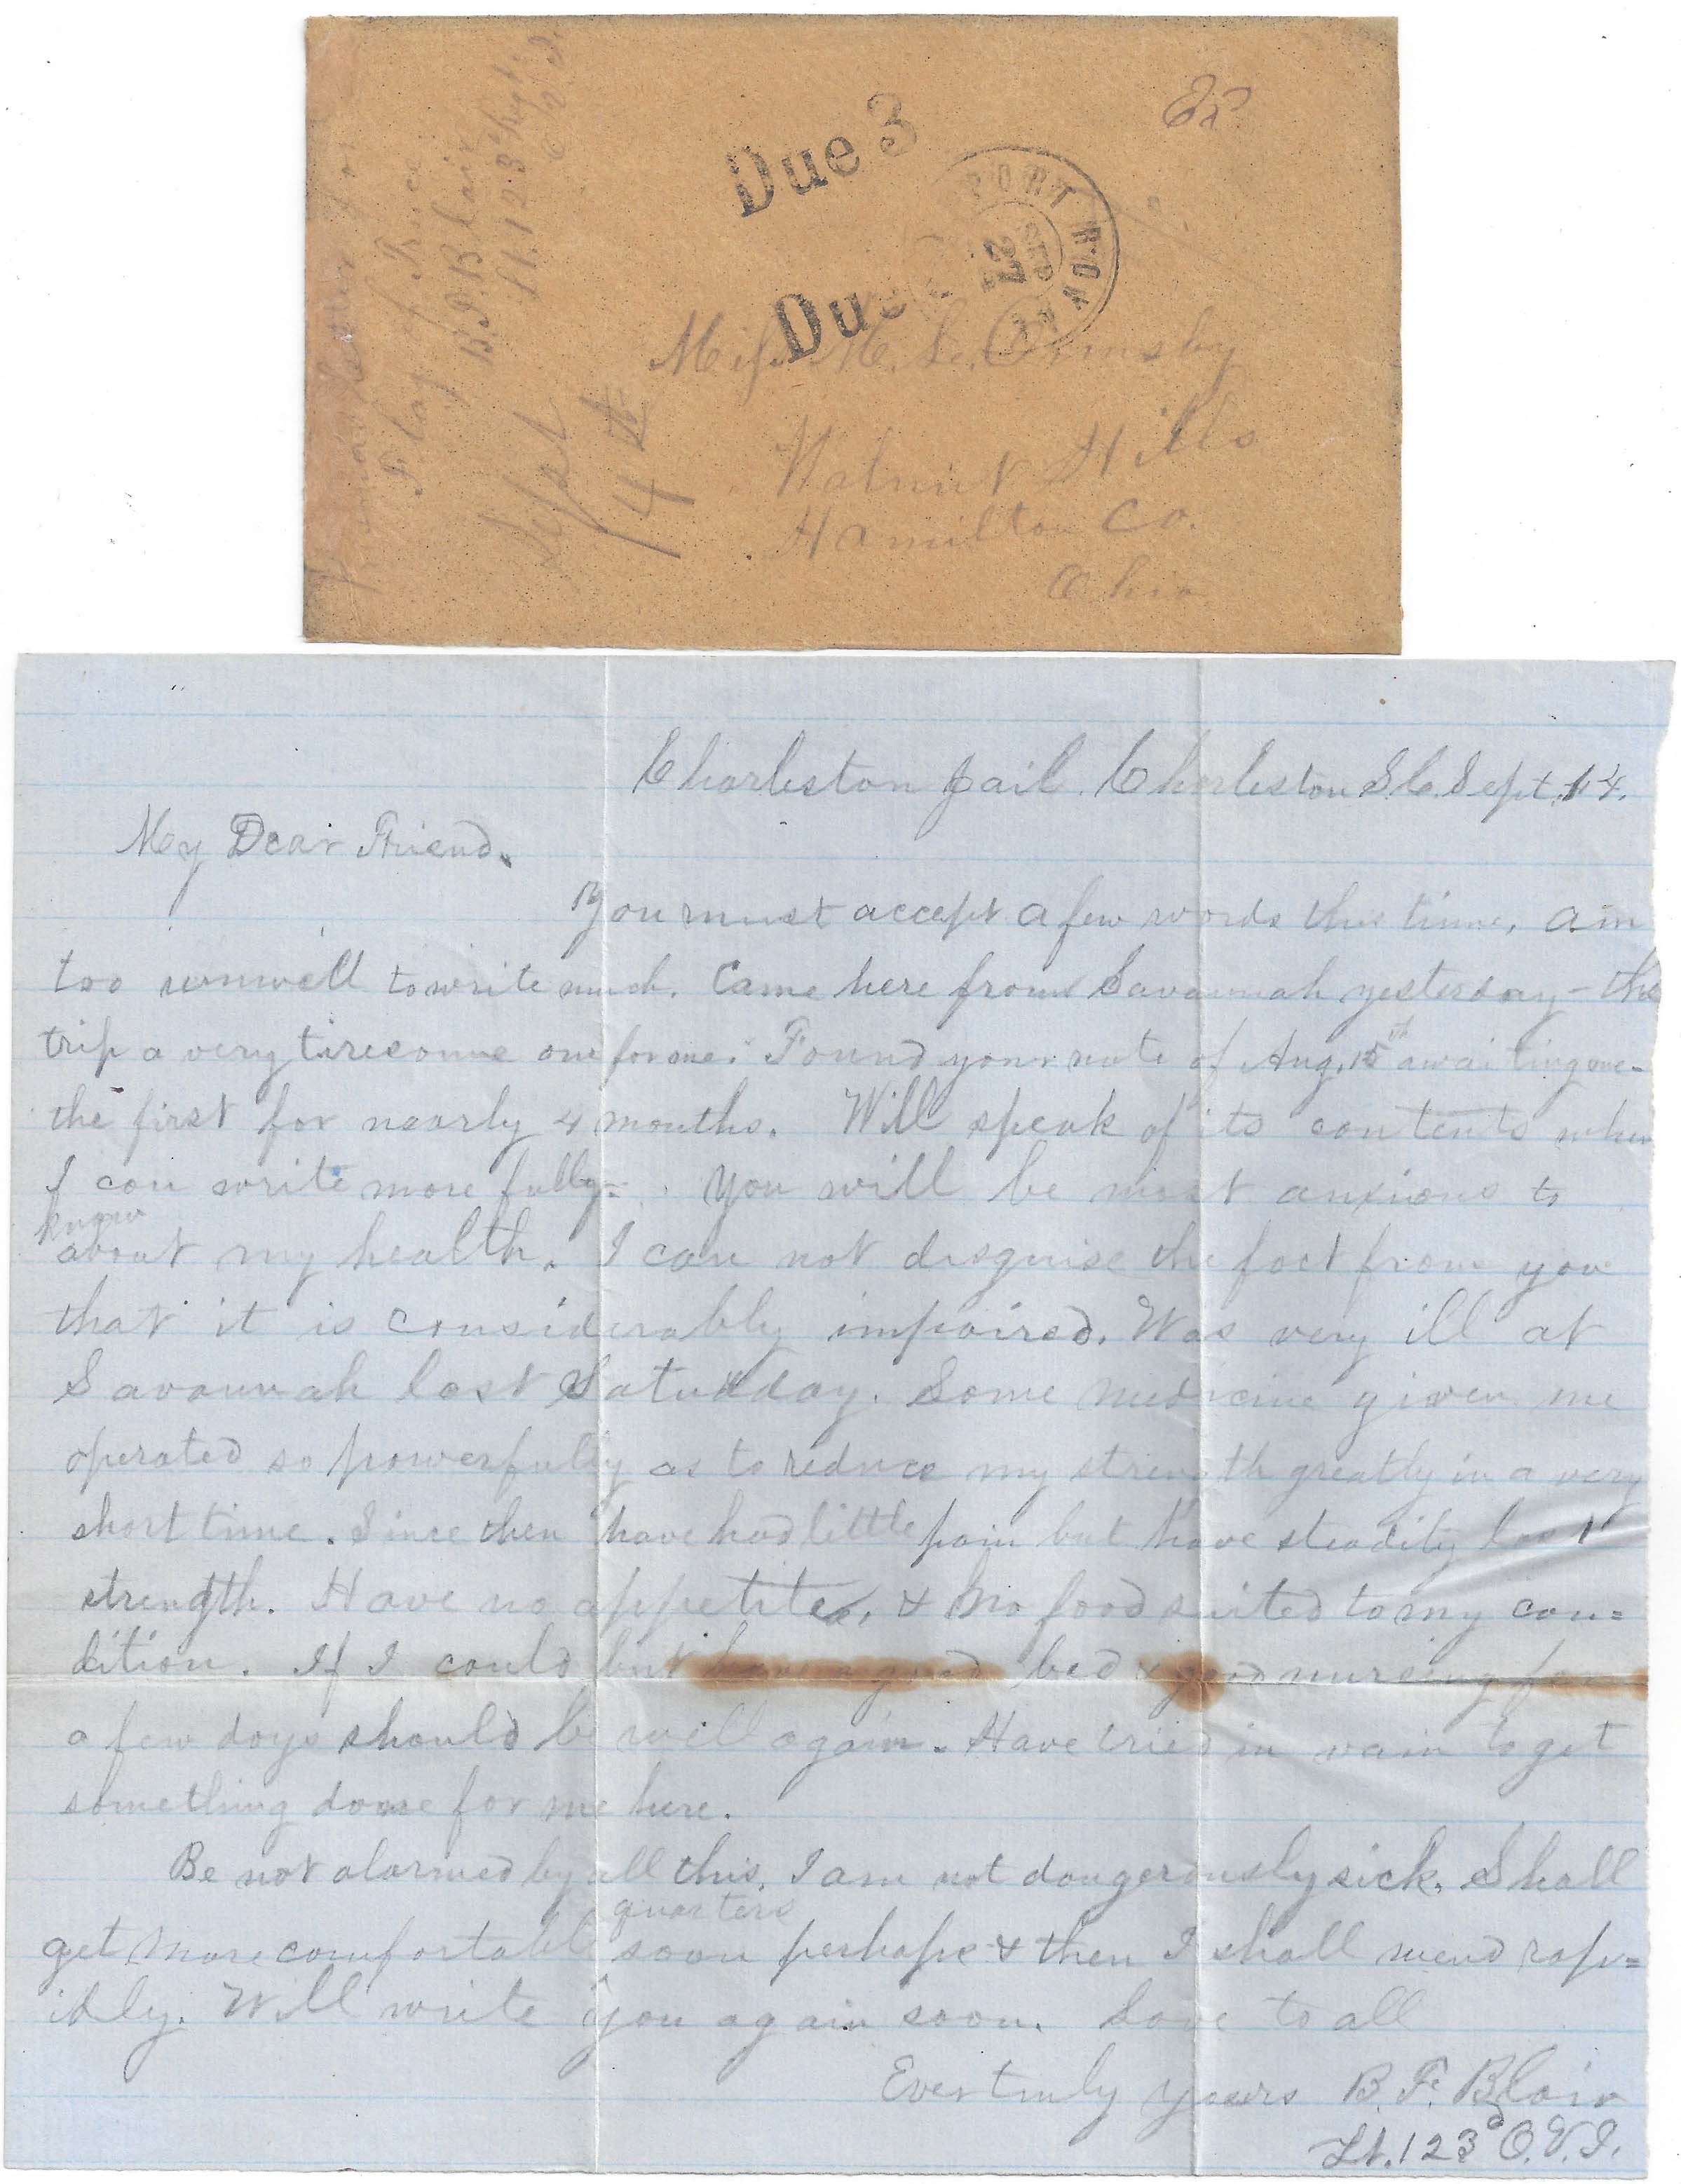 Due 3
Ex
PORT ROYAL
SEP
27
Due
Miss M. L. Ormsby
Walnut Hills
Hamilton Co.
Ohio
Letter
Flag of Truce
B. F. Blair
Lt. 123d Regt.
O. V. I.
Sept
14th
Charleston Jail. Charleston S.C. Sept. 14.
My Dear Friend.
You must accept a few words this time, am
too unwell to write much. Came here from Savannah yesterday – the
trip a very tiresome one for me. Found your note of Aug. 15th awaiting me –
the first for nearly 4 months. Will speak of its contents when
I can write more fully – You will be most anxious to
know
about my health. I can not disguise the fact from you
that it is considerably impaired. Was very ill at
Savannah last Saturday. Some medicine given me
operated so powerfully as to reduce my strength greatly in a very
short time. Since then have had little pain but have steadily lost
strength. Have no appetite, & no food suited to my con=
dition. If I could but have a good bed & good nursing for
a few days should be well again. Have tried in vain to get
something done for me here.
Be not alarmed by all this. I am not dangerously sick. Shall
quarters
get more comfortable soon perhaps & then I shall mend rap=
idly. Will write you again soon. Love to all
Ever truly yours B. F. Blair
Lt. 123d O.V.I.